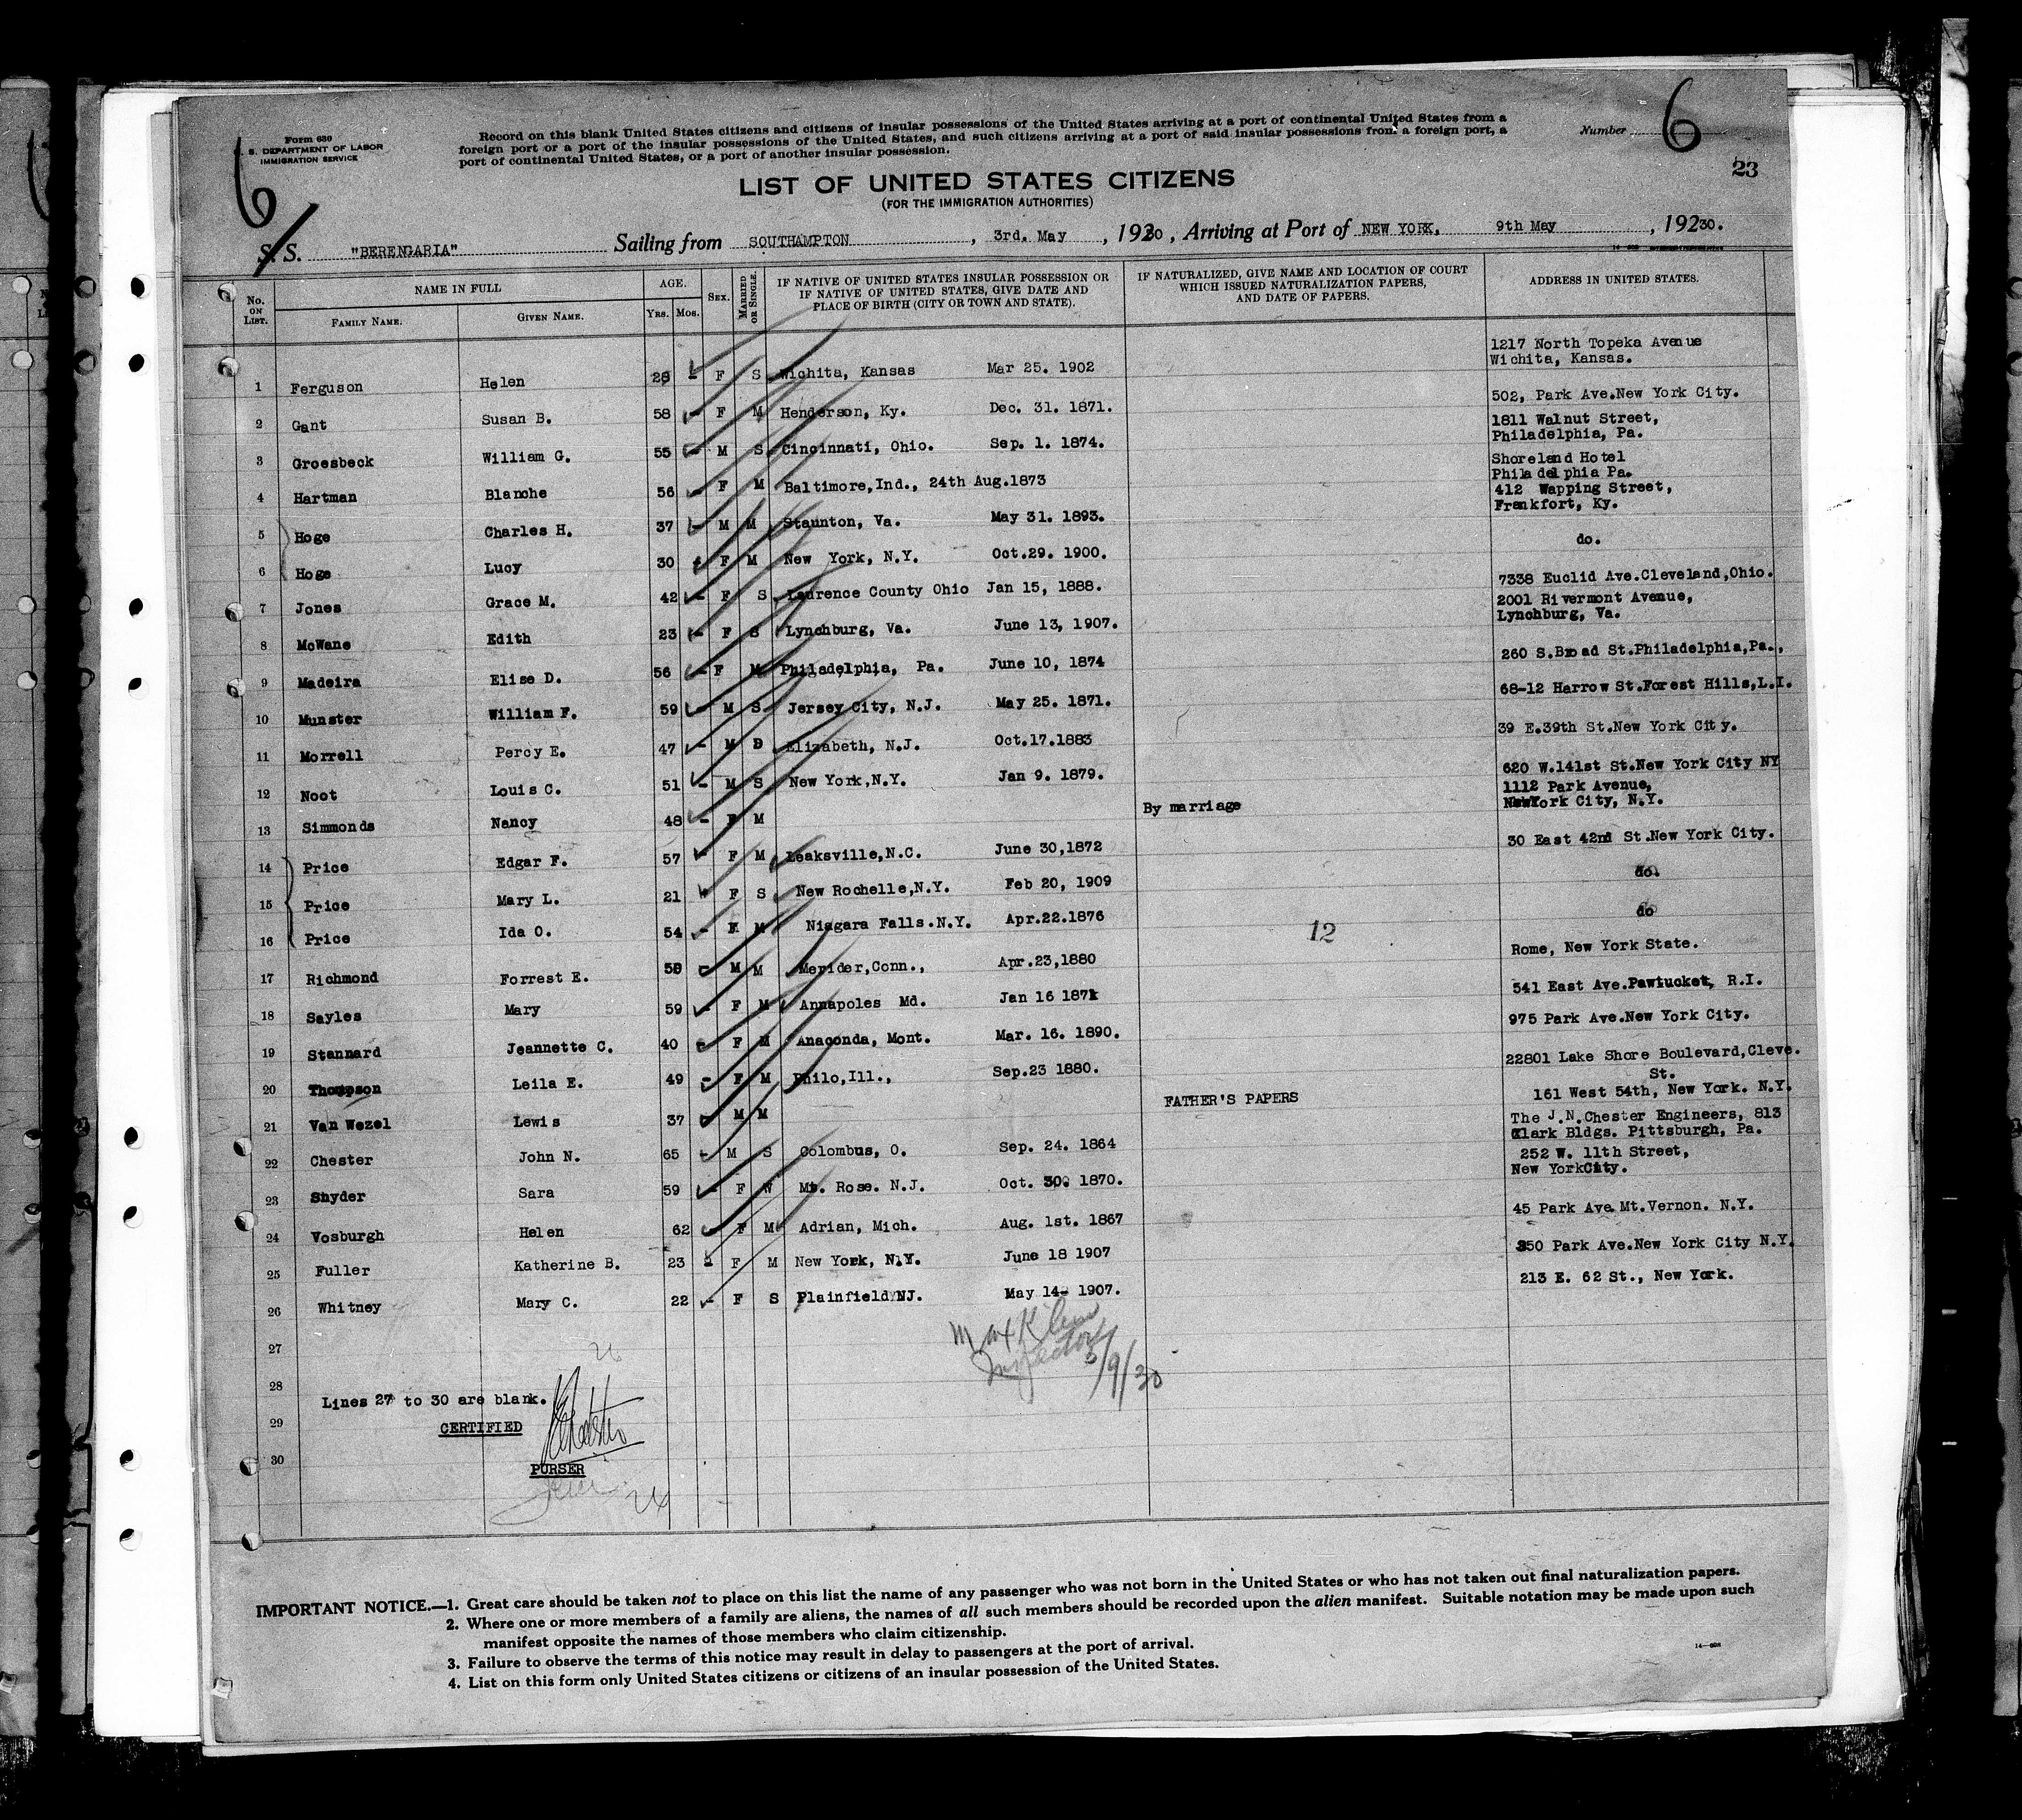 Form 630
U. S. DEPARTMENT OF LABOR
IMMIGRATION SERVICE
Record on this blank United States citizens and citizens of insular possessions of the United States arriving at a port of continental United States from a
foreign port or a port of the insular possessions of the United States, and such citizens arriving at a port of said insular possessions from a foreign port, a
port of continental United States, or a port of another insular possession.
Number 6
6
23
LIST OF UNITED STATES CITIZENS
(FOR THE IMMIGRATION AUTHORITIES)
S. S. "BERENGARIA" Sailing from SOUTHAMPTON, 3rd. May, 1930, Arriving at Port of NEW YORK, 9th May, 19230.
No. ON LIST. NAME IN FULL FAMILY NAME. GIVEN NAME. AGE. Yrs. Mos. SEX. MARRIED OR SINGLE. IF NATIVE OF UNITED STATES INSULAR POSSESSION OR IF NATIVE OF UNITED STATES, GIVE DATE AND PLACE OF BIRTH (CITY OR TOWN AND STATE). IF NATURALIZED, GIVE NAME AND LOCATION OF COURT WHICH ISSUED NATURALIZATION PAPERS, AND DATE OF PAPERS. ADDRESS IN UNITED STATES.
1 Ferguson Helen 28 - F S Wichita, Kansas Mar 25. 1902 1217 North Topeka Avenue Wichita, Kansas.
2 Gant Susan B. 58 - F M Henderson, Ky. Dec. 31. 1871. 502, Park Ave.New York City.
3 Groesbeck William G. 55 - M S Cincinnati, Ohio. Sep. 1. 1874. 1811 Walnut Street, Philadelphia, Pa.
4 Hartman Blanche 56 - F M Baltimore,Ind., 24th Aug.1873 Shoreland Hotel Philadelphia Pa.
5 Hoge Charles H. 37 - M M Staunton, Va. May 31. 1893. 412 Wapping Street, Frankfort, Ky.
6 Hoge Lucy 30 - F M New York, N.Y. Oct.29. 1900. do.
7 Jones Grace M. 42 - F S Laurence County Ohio Jan 15, 1888. 7338 Euclid Ave.Cleveland,Ohio.
8 McWane Edith 23 - F S Lynchburg, Va. June 13, 1907. 2001 Rivermont Avenue, Lynchburg, Va.
9 Madeira Elise D. 56 - F M Philadelphia, Pa. June 10, 1874 260 S.Broad St.Philadelphia,Pa.,
10 Munster William F. 59 - M S Jersey City, N.J. May 25. 1871. 68-12 Harrow St.Forest Hills,L.I.
11 Morrell Percy E. 47 - M D Elizabeth, N.J. Oct.17.1883 39 E.39th St.New York City.
12 Noot Louis C. 51 - M S New York,N.Y. Jan 9. 1879. 620 W.141st St.New York City NY
13 Simmonds Nancy 48 - F M By marriage 1112 Park Avenue, New York City, N.Y.
14 Price Edgar F. 57 - F M Leaksville,N.C. June 30,1872 30 East 42nd St.New York City.
15 Price Mary L. 21 F S New Rochelle,N.Y. Feb 20, 1909 do.
16 Price Ida O. 54 - F M Niagara Falls.N.Y. Apr.22.1876 do
12
17 Richmond Forrest E. 50 - M M Merider,Conn., Apr.23,1880 Rome, New York State.
18 Sayles Mary 59 - F M Annapoles Md. Jan 16 1871 541 East Ave.Pawtucket, R.I.
19 Stannard Jeannette C. 40 - F M Anaconda, Mont. Mar. 16. 1890. 975 Park Ave.New York City.
20 Thompson Leila E. 49 - F M Philo,Ill., Sep.23 1880. 22801 Lake Shore Boulevard,Cleve.
21 Van Wezel Lewis 37 - M M FATHER'S PAPERS St. 161 West 54th, New York. N.Y.
22 Chester John N. 65 - M S Colombus, O. Sep. 24. 1864 The J.N.Chester Engineers, 813 Clark Bldgs. Pittsburgh, Pa.
23 Snyder Sara 59 - F W Mt. Rose. N.J. Oct. 30. 1870. 252 W. 11th Street, New York City.
24 Vosburgh Helen 62 - F M Adrian, Mich. Aug. 1st. 1867 45 Park Ave Mt.Vernon. N.Y.
25 Fuller Katherine B. 23 - F M New York, N.Y. June 18 1907 350 Park Ave.New York City N.Y.
26 Whitney Mary C. 22 - F S Plainfield NJ. May 14- 1907. 213 E. 62 St., New York.
27
28
29
30
26
Max Klein
Inspector
5/9/30
Lines 27 to 30 are blank.
CERTIFIED
PURSER
24
IMPORTANT NOTICE.—1. Great care should be taken not to place on this list the name of any passenger who was not born in the United States or who has not taken out final naturalization papers.
2. Where one or more members of a family are aliens, the names of all such members should be recorded upon the alien manifest. Suitable notation may be made upon such
manifest opposite the names of those members who claim citizenship.
3. Failure to observe the terms of this notice may result in delay to passengers at the port of arrival.
4. List on this form only United States citizens or citizens of an insular possession of the United States.